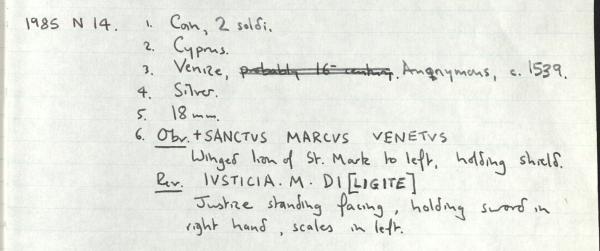 1985 N 14. 1. Coin, 2 soldi.
2. Cyprus.
3. Venice, probably 16th century. Anonymous, c. 1539.
4. Silver.
5. 18 mm.
6. Obv. +SANCTVS MARCVS VENETVS
Winged lion of St. Mark to left, holding shield.
Rev. IVSTICIA. M. DI[LIGITE]
Justice standing facing, holding sword in
right hand, scales in left.